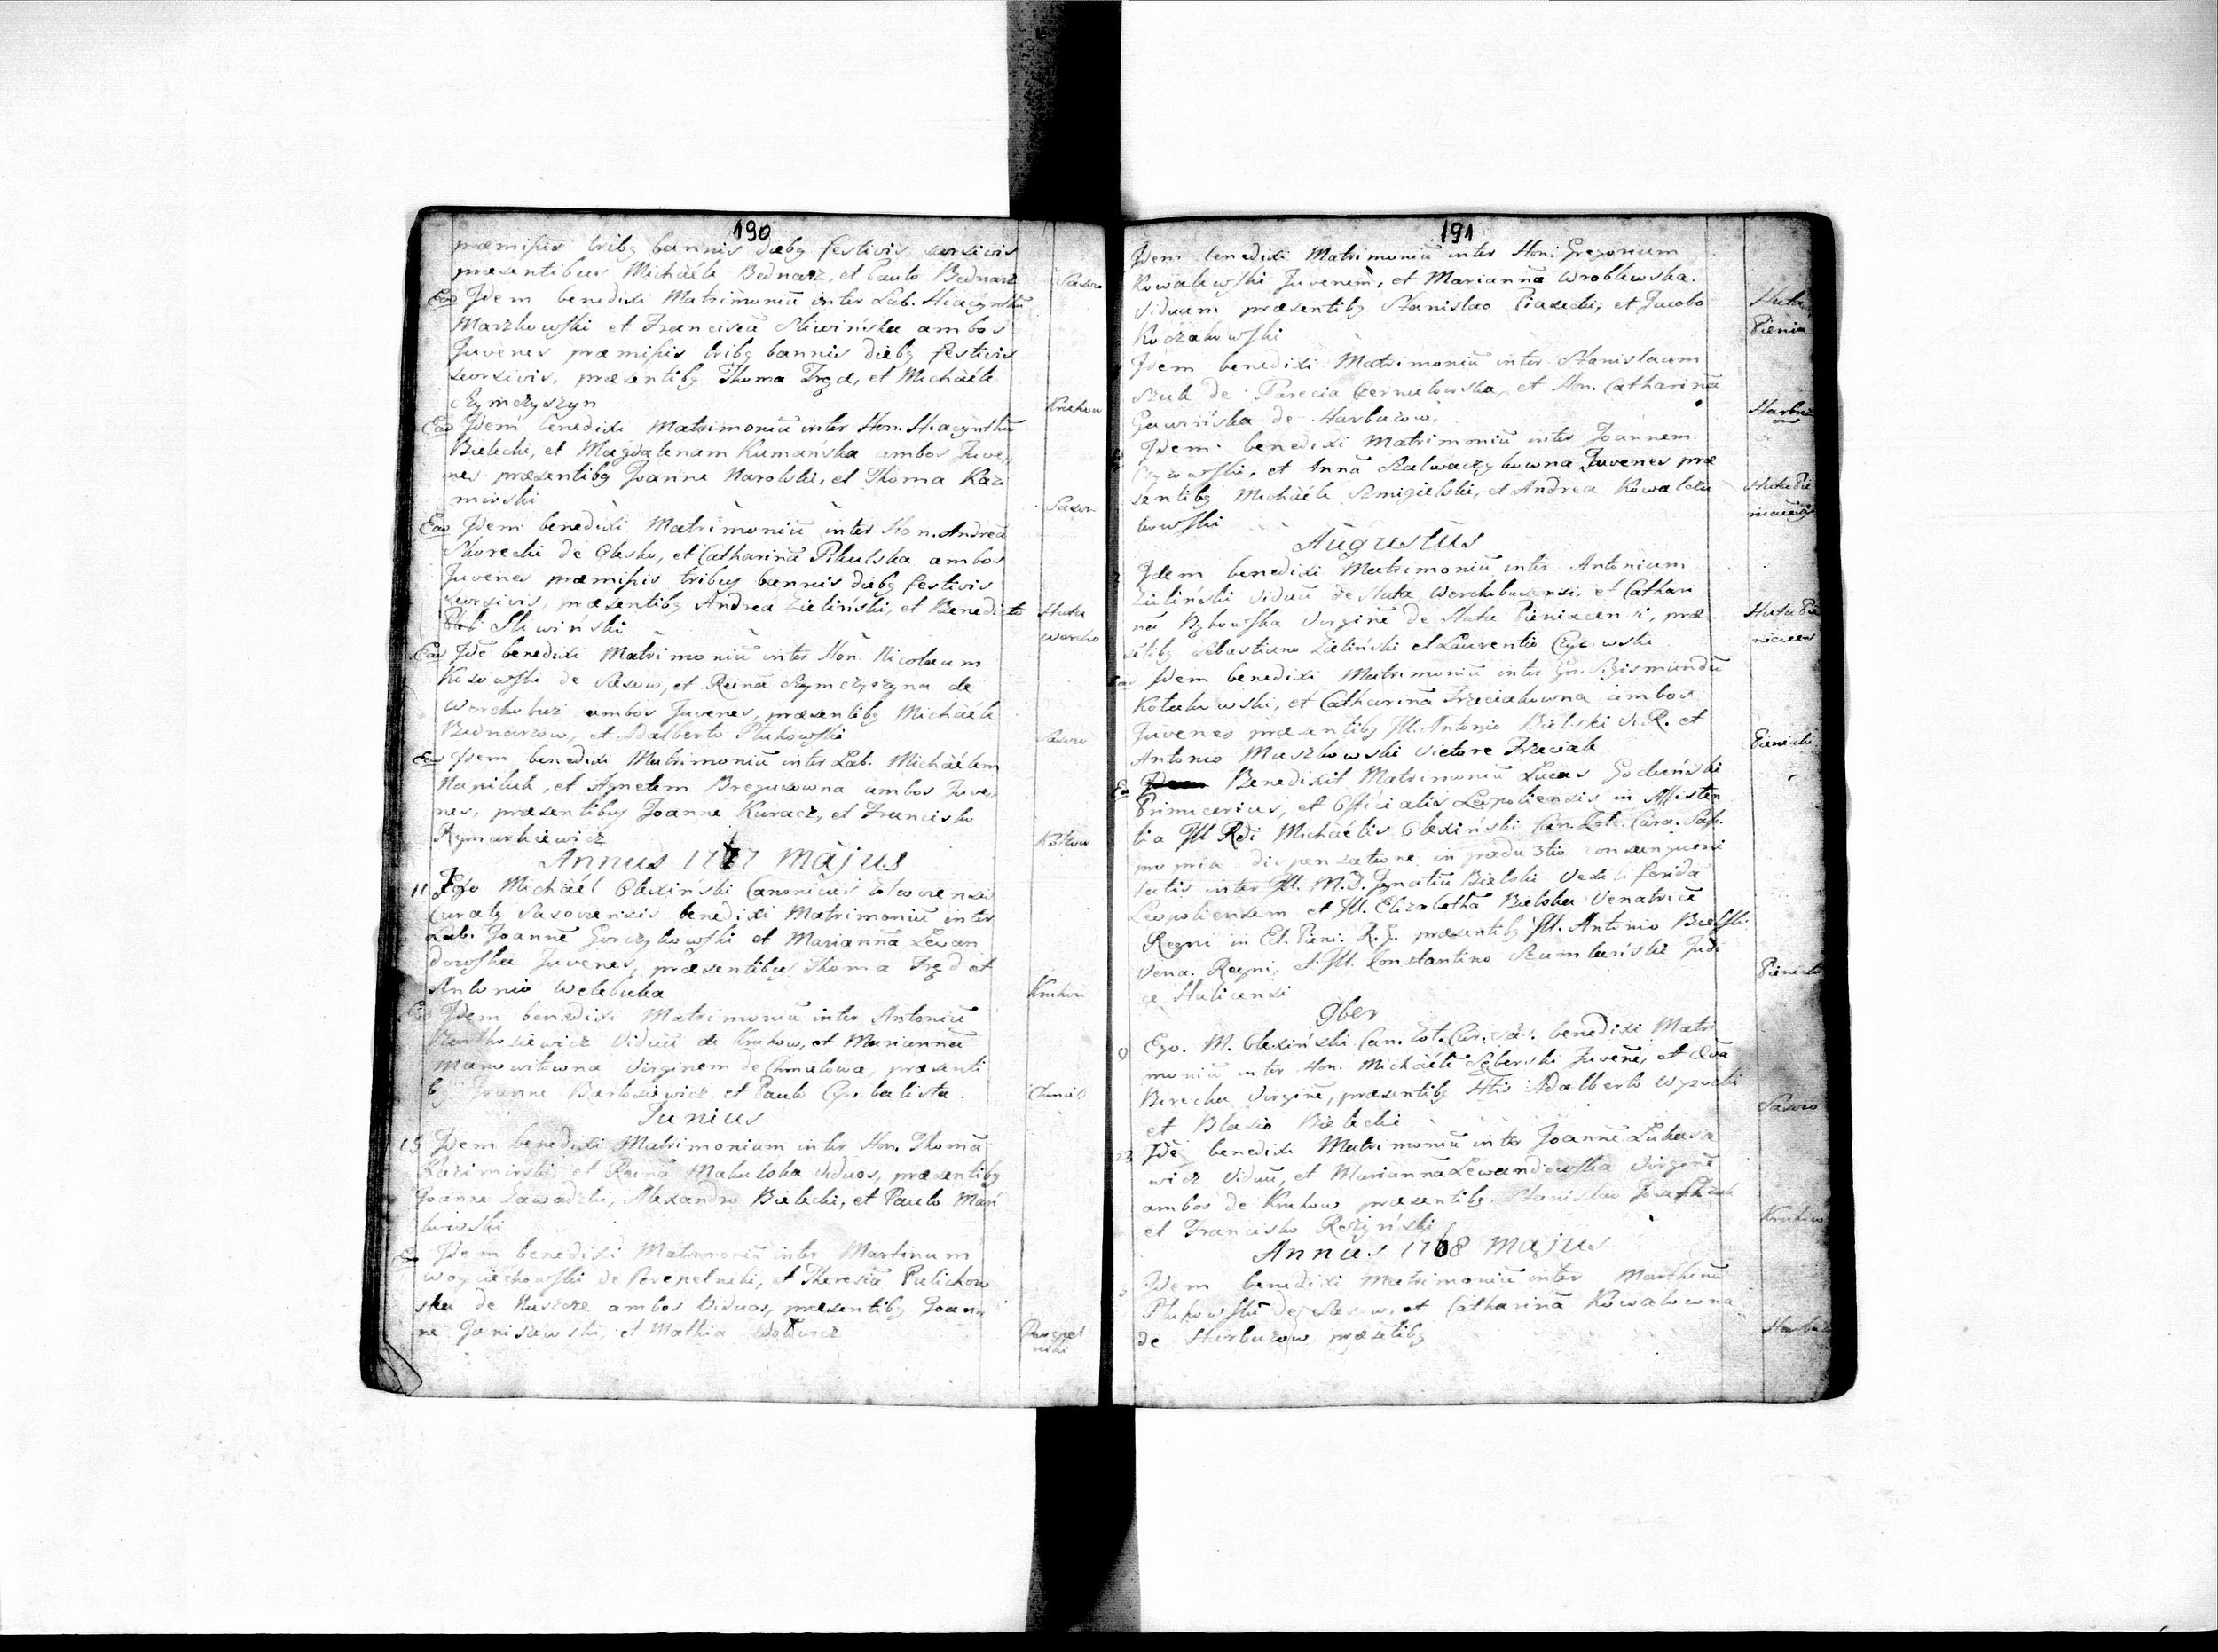 190
præmissis tribg bannis diebg festivis sævsivis
præsentibus Michäéle Bednarz, et Paulo Bednarz
Sasow
Ead Idem benedixi Matrimoniũ inter Lab. Hiacynthũ
Marzkowski et Franciscã Sliwińska ambos
Juvenes præmissis tribg bannis diebg festivis
seorsivis, præsentibg Thoma Trąd, et Michäéle
Szymczyszyn
Kruhow
Ead Idem benedixi Matrimoniũ inter Hon. Hiacynthũ
Bielecki, et Magdalenam Kumańska ambos Juve„
nes præsentibg Joanne Narolski, et Thoma Kaz
mirski
Sasow
Ead Idem benedixi Matrimoniũ inter Hon. Andreã
Skorecki de Olesko, et Catharinã Pikulska ambos
Juvenes præmissis tribus bannis diebg festivis
seorsivis, præsentibg Andrea Zieliński, et Benedicto
Sliwiński
Huta
wercho
Ead Idẽ benedixi Matrimoniũ inter Hon. Nicolaum
Kosowski de Sasow, et Reinã Szymczyszyna de
Werchobuz ambos Juvenes, præsentibg Michäéle
Bednarzow, et Adalberto Plukowski
Sasow
Ead Idem benedixi Matrimoniũ inter Lab. Michäélem
Napiluk, et Agnetem Breguzowna ambos Juve„
nes, præsentibus Joanne Kuracz, et Francisko
Rymarkiewicz
Koltow
Annus 1767 Majus
11 Ego Michäél Olexiński Canonicus
Curatg Sasoviensis benedixi Matrimoniũ inter
Lab. Joannẽ Gorczykowski et Mariannã Lewan
dowska Juvenes, præsentibus Thoma Trąd et
Antonio Welebuka
Kruhow
Ead Idem benedixi Matrimoniũ inter Antoniũ
Barthosiewicz Viduũ de Kruhow, et Mariannã
Manowitowna Virginem de Chmielowa, præsenti
bg Joanne Bartosiewicz et Paulo Cymbalista.
Chmiel
Junius
15 Idem benedixi Matrimonium inter Hon. Thomã
Kazimirski et Reinã Makulska Viduos, præsentibg
Joanne Zawadzki, Alexandro Bielecki, et Paulo Mań
kowski
Ead Idem benedixi Matrimoniũ inter Martinum
Woyciechowski de Perepelniki, et Theresiã Pielichow
ska de Nuszcze ambos Viduos, præsentibg Joan„
ne Janiszewski, et Mathia
Perepel
niki
191
Idem benedixi Matrimoniũ inter Hon. Gregorium
Kowalewski Juvenem, et Mariannã Wroblewska.
Viduam præsentibg Stanislao Piasecki, et Jacobo
Koczakowski
Huta
Pienia
Idem benedixi Matrimoniũ inter Stanislaum
Szuk de Parecia Czernielowska, et Hon. Catharinã
Gawińska de Harbuzow.
Harbuz
ow
Idem benedixi Matrimoniũ inter Joannem
Czyzowski, et Annã Szlwaczykowna Juvenes præ
sentibg Michäéle Szmigielski, et Andrea Kowalcza
kowski
Huta Pie
Augustus
Idem benedixi Matrimoniũ inter Antonium
Zieliński Viduũ de Huta Werchobuzensi, et Cathari
nã Bykowska Virginẽ de Huta Pieniacensi, præ
sẽtibg Sebastiano Zieliński et Laurentio Czyzowski
Huta Pie
niacen
Ead Idem benedixi Matrimoniũ inter Gn. Sigismundũ
Kotukowski, et Catharinã Trzeciakowna ambos
Juvenes præsentibg Jll. Antonio Bielski V. R. et
Antonio Maszkowski Victore Trzeciak
Pieniaki
Ea Benedixit Matrimoniũ Lucas Godzieński
Primicerius, et Officialis Leopoliensis in Assisten
tia Jll Rdi Michäélis Olexiński Can. Zot. Cura. Sas.
præmia dispensatione in gradu 3tio consanguini
tatis inter Jll. M. D. Ignatiũ Bielski Vexiliferida
Leopoliensem et Jll. Elizabethã Bielska Venatricẽ
Regni in Ecl. Pieni. R. G. præsentibg Jll. Antonio Bielski
Vena. Regni, et Jll. Constantino Szumlański Judi
ce Haliciensi
Pieniaki
9ber
9 Ego. M. Olexiński Can. Zot. Cur. Sas. benedixi Matri
moniũ inter Hon. Michäélẽ Szberski Juvenẽ, et Evã
Berecka Virginẽ, præsentibg Htis Adalberto Wysocki
et Blasio Bielecki
Sasow
23 Idẽ benedixi Matrimoniũ inter Joannẽ Lukasie
wicz Viduũ, et Mariannã Lewandowska Virginẽ
ambos de Kruhow præsentibg Stanislao
et Francisko Rczyński
Kruhow
Annus 1768 Majus
Idem benedixi Matrimoniũ inter Marthinũ
Plukowski de Sasow, et Catharinã Kowalowna
de Harbuzow præsẽtibg
Harbuz